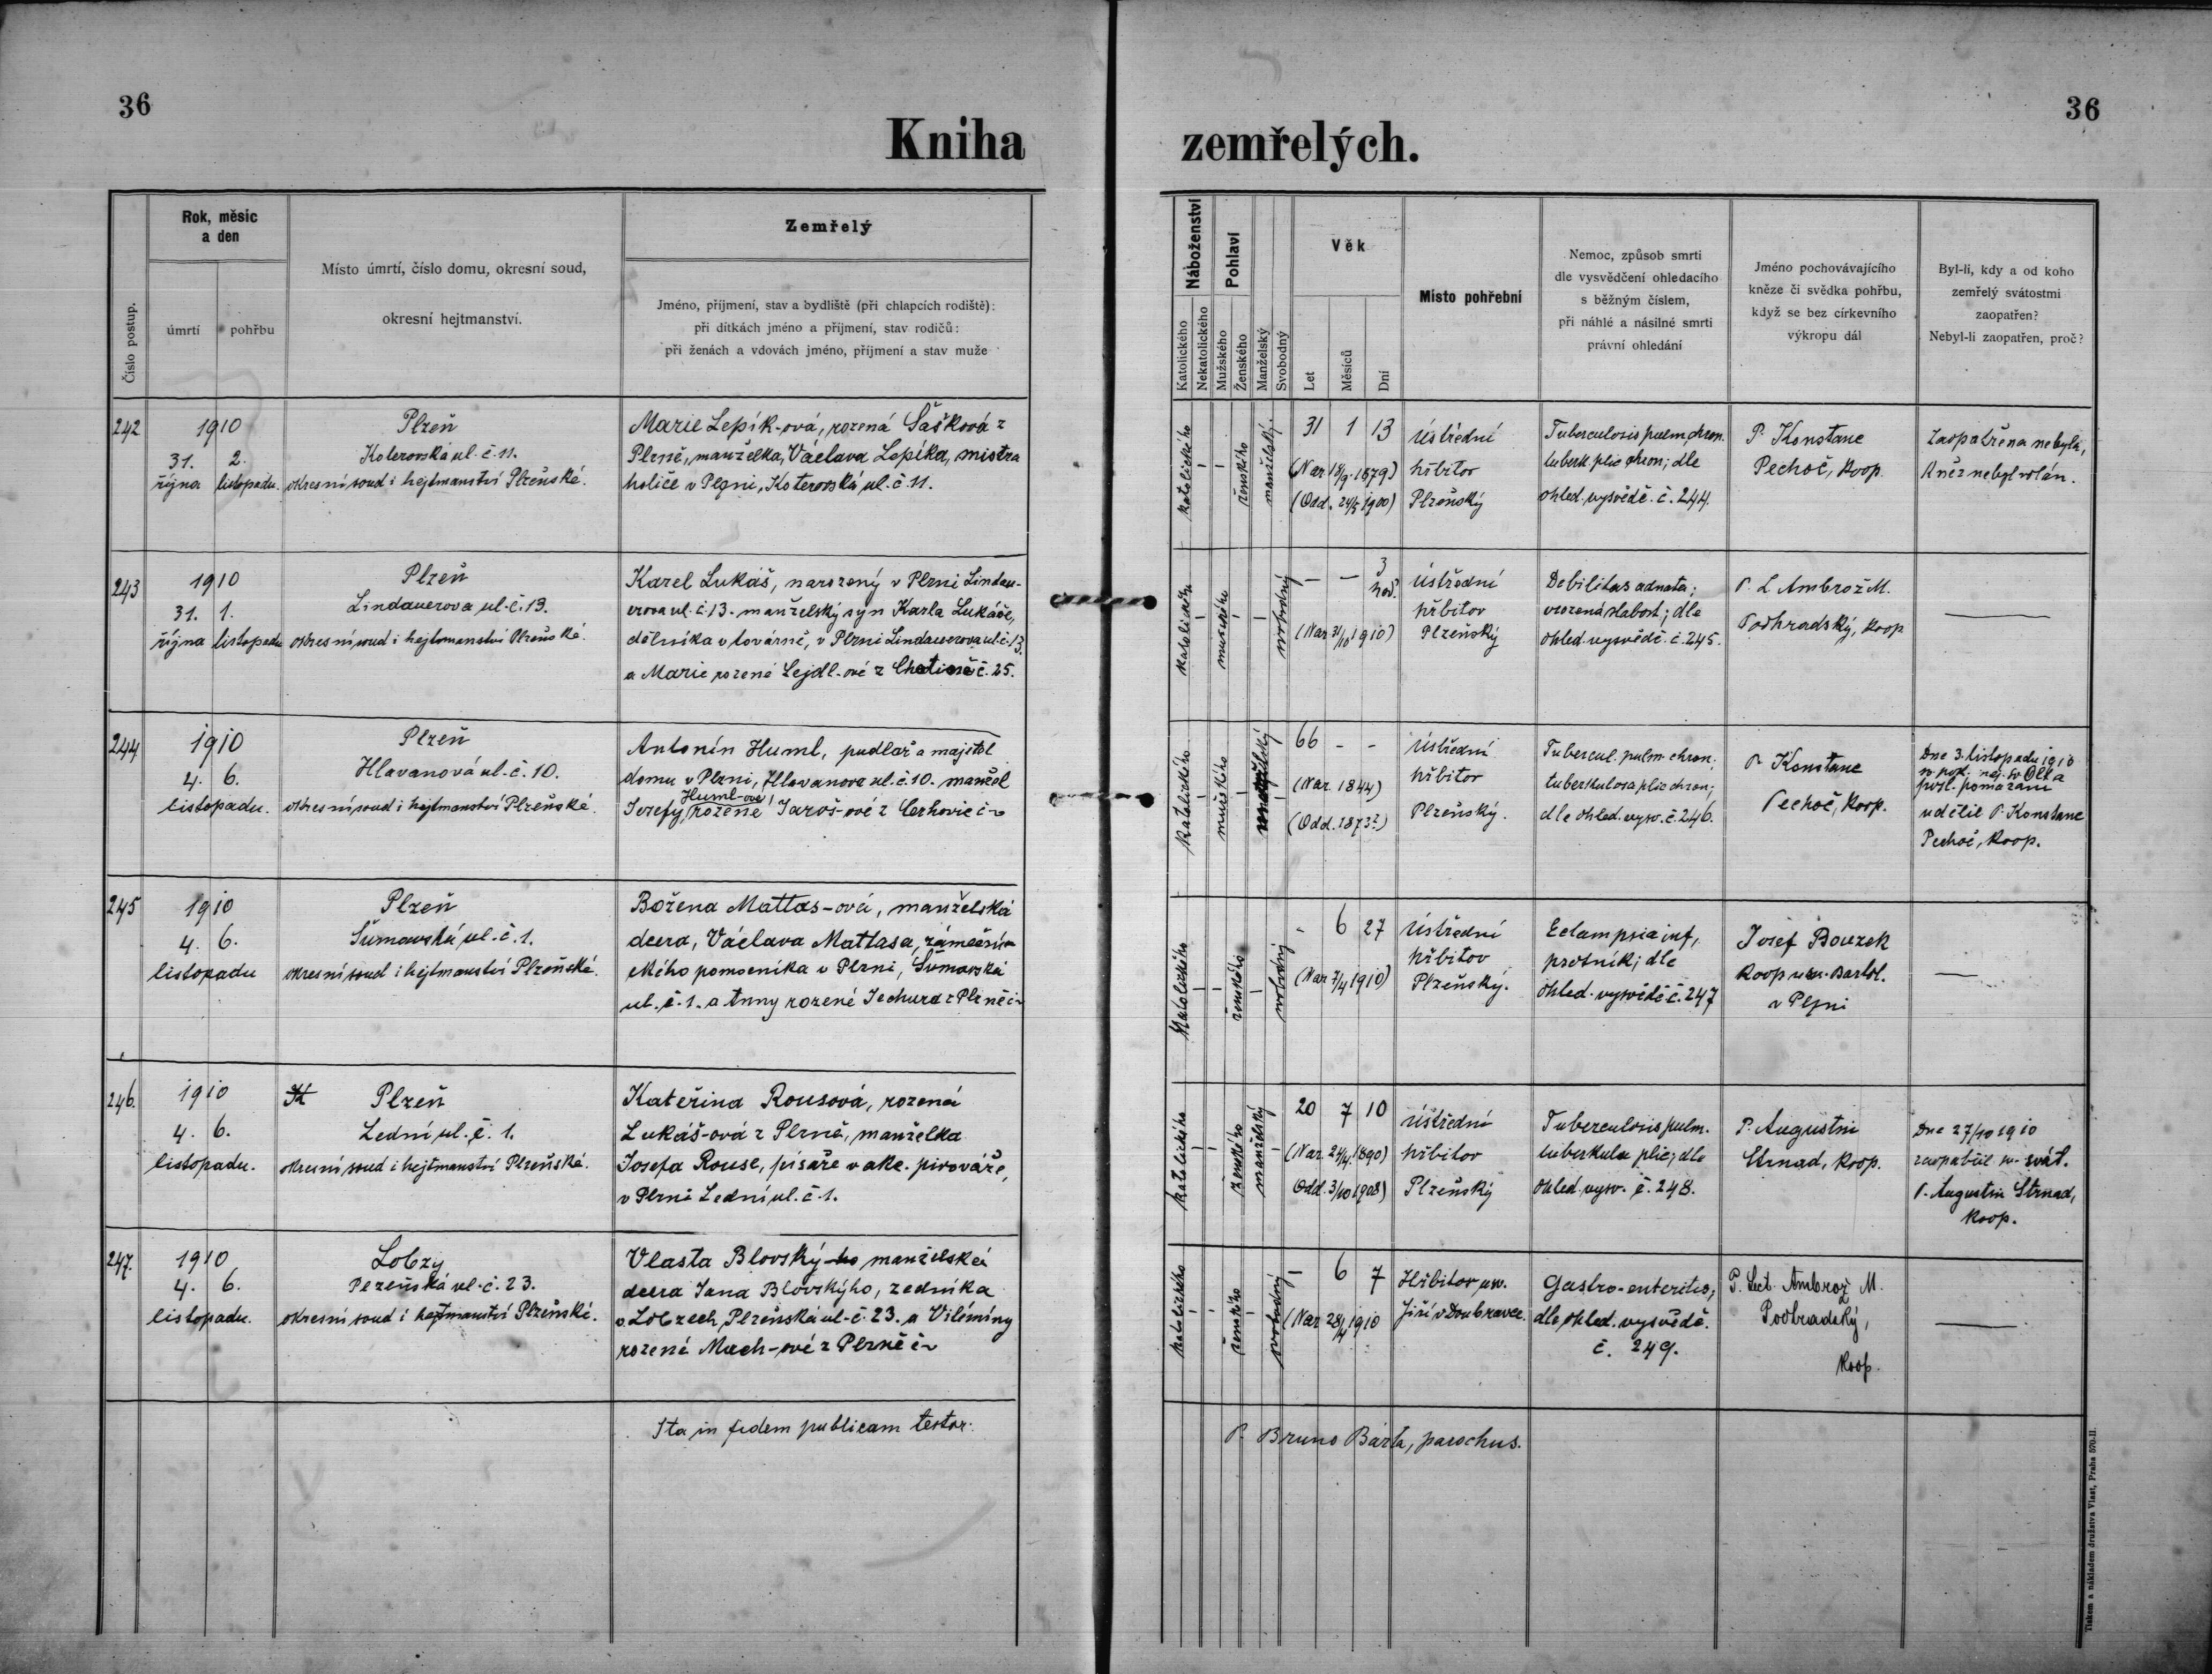 36
Kniha
zemřelých.
36
Číslo postup.
Rok, měsíc
a den
úmrtí
pohřbu
Místo úmrtí, číslo domu, okresní soud,
okresní hejtmanství.
Zemřelý
Jméno, příjmení, stav a bydliště (při chlapcích rodiště):
při dítkách jméno a příjmení, stav rodičů:
při ženách a vdovách jméno, příjmení a stav muže
Náboženství
Katolického
Nekatolického
Pohlaví
Mužského
Ženského
Manželský
Svobodný
Věk
Let
Měsíců
Dní
Místo pohřební
Nemoc, způsob smrti
dle vysvědčení ohledacího
s běžným číslem,
při náhlé a násilné smrti
právní ohledání
Jméno pochovávajícího
kněze či svědka pohřbu,
když se bez církevního
výkropu dál
Byl-li, kdy a od koho
zemřelý svátostmi
zaopatřen?
Nebyl-li zaopatřen, proč?
242
1910
31. 2.
října listopadu.
Plzeň
Koterovská ul. č. 11.
okresní soud i hejtmanství Plzeňské.
Marie Lepík-ová, rozená Šašková z
Plzně, manželka, Václava Lepíka, mistra
holiče v Plzni, Koterovská ul. č. 11.
katolického
ženského
manželský
31 1 13
(Nar. 18/9. 1879)
(Odd. 24/5 1900)
Ústřední
hřbitov
Plzeňský
Tuberculosis pulm. chron.
tuberk. plic chron; dle
ohled. vysvědč. č. 244.
P. Konstanc
Pechoč, koop.
Zaopatřena nebyla,
kněz nebyl volán.
243
1910
31. 1.
října listopadu
Plzeň
Lindauerova ul. č. 13.
okresní soud i hejtmanství Plzeňské.
Karel Lukáš, narozený v Plzni Lindau-
erova ul. č. 13. manželský syn Karla Lukáše,
dělníka v továrně, v Plzni Lindauerova ul č. 13.
a Marie rozené Lejdl-ové z č. 25.
katolického
mužského
svobodný
— — 3
hod.
(Nar. 31/10 1910)
ústřední
hřbitov
Plzeňský
Debilitas adnata;
vrozená slabost; dle
ohled. vysvědč. č. 245.
P. L. Ambrož M.
Podhradský, koop
244
1910
4. 6.
listopadu.
Plzeň
Hlavanová ul. č. 10.
okresní soud i hejtmanství Plzeňské.
Antonín Huml, pudlař a majitel
domu v Plzni, Hlavanova ul. č. 10. manžel
Huml-ové
Josefy, rozené Jaroš-ové z Cerhovic č ~
katolického
mužského
manželský
66 - -
(Nar. 1844)
(Odd. 1873?)
Ústřední
hřbitov
Plzeňský.
Tubercul. pulm. chron.
tuberkulosa plic chron;
dle ohled. vysv. č. 246.
P. Konstanc
Pechoč, koop.
Dne 3. listopadu 1910
posl. pomazání
udělil P. Konstanc
Pechoč, koop.
245
1910
4. 6.
listopadu
Plzeň
Šumavská ul. č. 1.
okresní soud i hejtmanství Plzeňské.
Božena Mattas-ová, manželská
dcera, Václava Mattasa, zámečni-
ckého pomocníka v Plzni, Šumavská
ul. č. 1. a Anny rozené Jechura z Plzně č ~
katolického
ženského
svobodný
- 6 27
(Nar. 7/4 1910)
Ústřední
hřbitov
Plzeňský.
Eclampsia inf,
psotník; dle
ohled. vysvědč č. 247
Josef Bouzek
koop u sv. Bartol.
v Plzni
246.
1910
4. 6.
listopadu.
Plzeň
Lední ul. č. 1.
okresní soud i hejtmanství Plzeňské.
Kateřina Rousová, rozená
Lukáš-ová z Plzně, manželka
Josefa Rouse, písaře v akc. pivováře,
v Plzni Lední ul. č. 1.
katolického
ženského
manželský
20 7 10
(Nar. 24/4. 1890)
Odd. 3/10 1908)
Ústřední
hřbitov
Plzeňský
Tuberculosis pulm.
tuberkula plic; dle
ohled. vysv. č. 248.
P. Augustin
Strnad, koop.
Dne 27/10 1910
zaopatřil sv. svát.
P. Augustin Strnad,
koop.
247.
1910
4. 6.
listopadu.
Lobzy
Plzeňská ul. č. 23.
okresní soud i hejtmanství Plzeňské.
Vlasta Blovský-ho manželská
dcera Jana Blovského, zedníka
v Lobzech, Plzeňská ul. č. 23. a Vilémíny
rozené Mach-ové z Plzně č ~
katolického
ženského
svobodný
— 6 7
(Nar 28/4 1910
Hřbitov u sv.
Jiří v Doubravce.
Gastro-enteritis;
dle ohled. vysvědč.
č. 249.
P. Lect. Ambrož M.
Podhradský,
koop.
Ita in fidem publicam testor:
P. Bruno Bárta, parochus.
Tiskem a nákladem družstva Vlast, Praha 570-II.